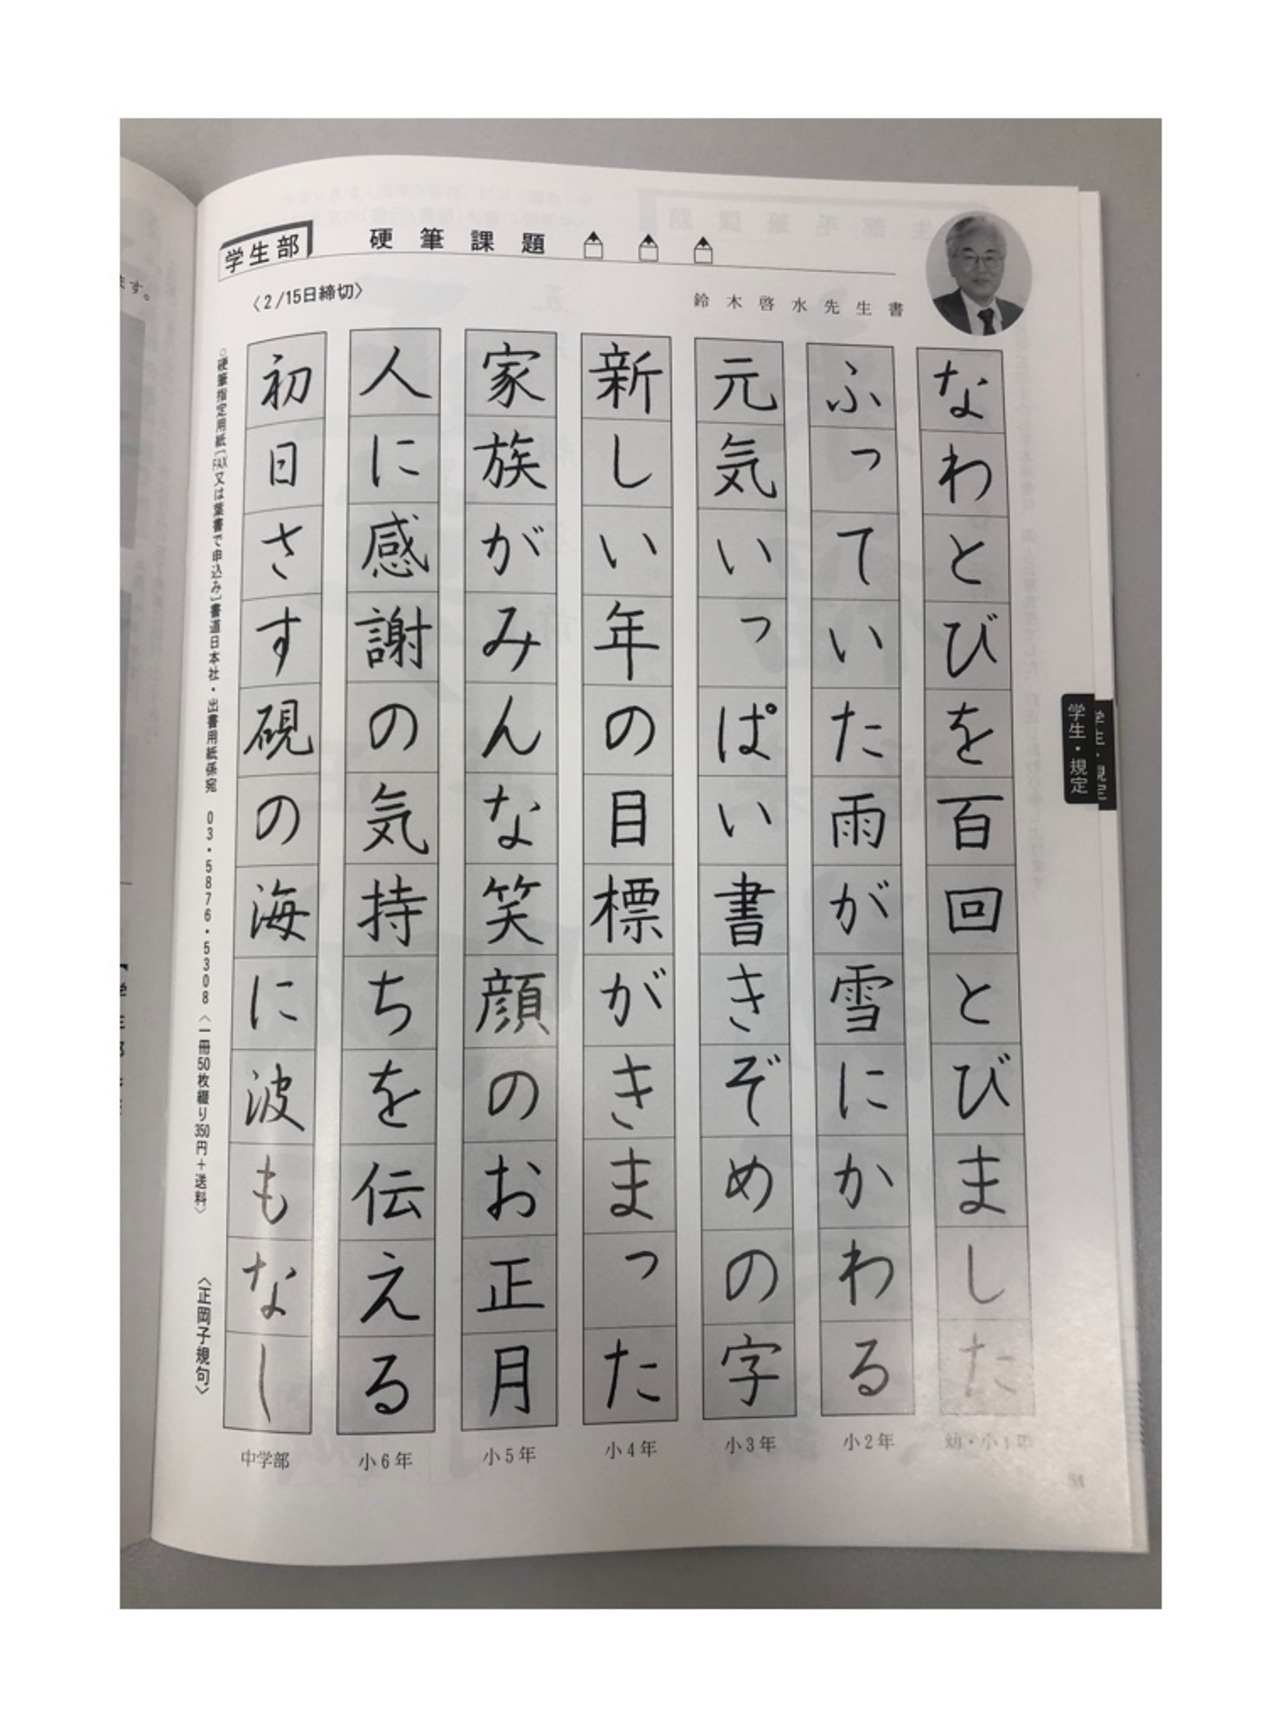 学生部
硬筆課題
〈2/15日締切〉
鈴木啓水先生書
なわとびを百回とびました
幼・小1年
ふっていた雨が雪にかわる
小2年
元気いっぱい書きぞめの字
小3年
新しい年の目標がきまった
小4年
家族がみんな笑顔のお正月
小5年
人に感謝の気持ちを伝える
小6年
初日さす硯の海に波もなし
中学部
〈正岡子規句〉
○硬筆指定用紙[FAX又は葉書で申込み]書道日本社・出書用紙係宛 03・5876・5308〈一冊50枚綴り350円+送料〉
学生・規定
学生・規定
ます。